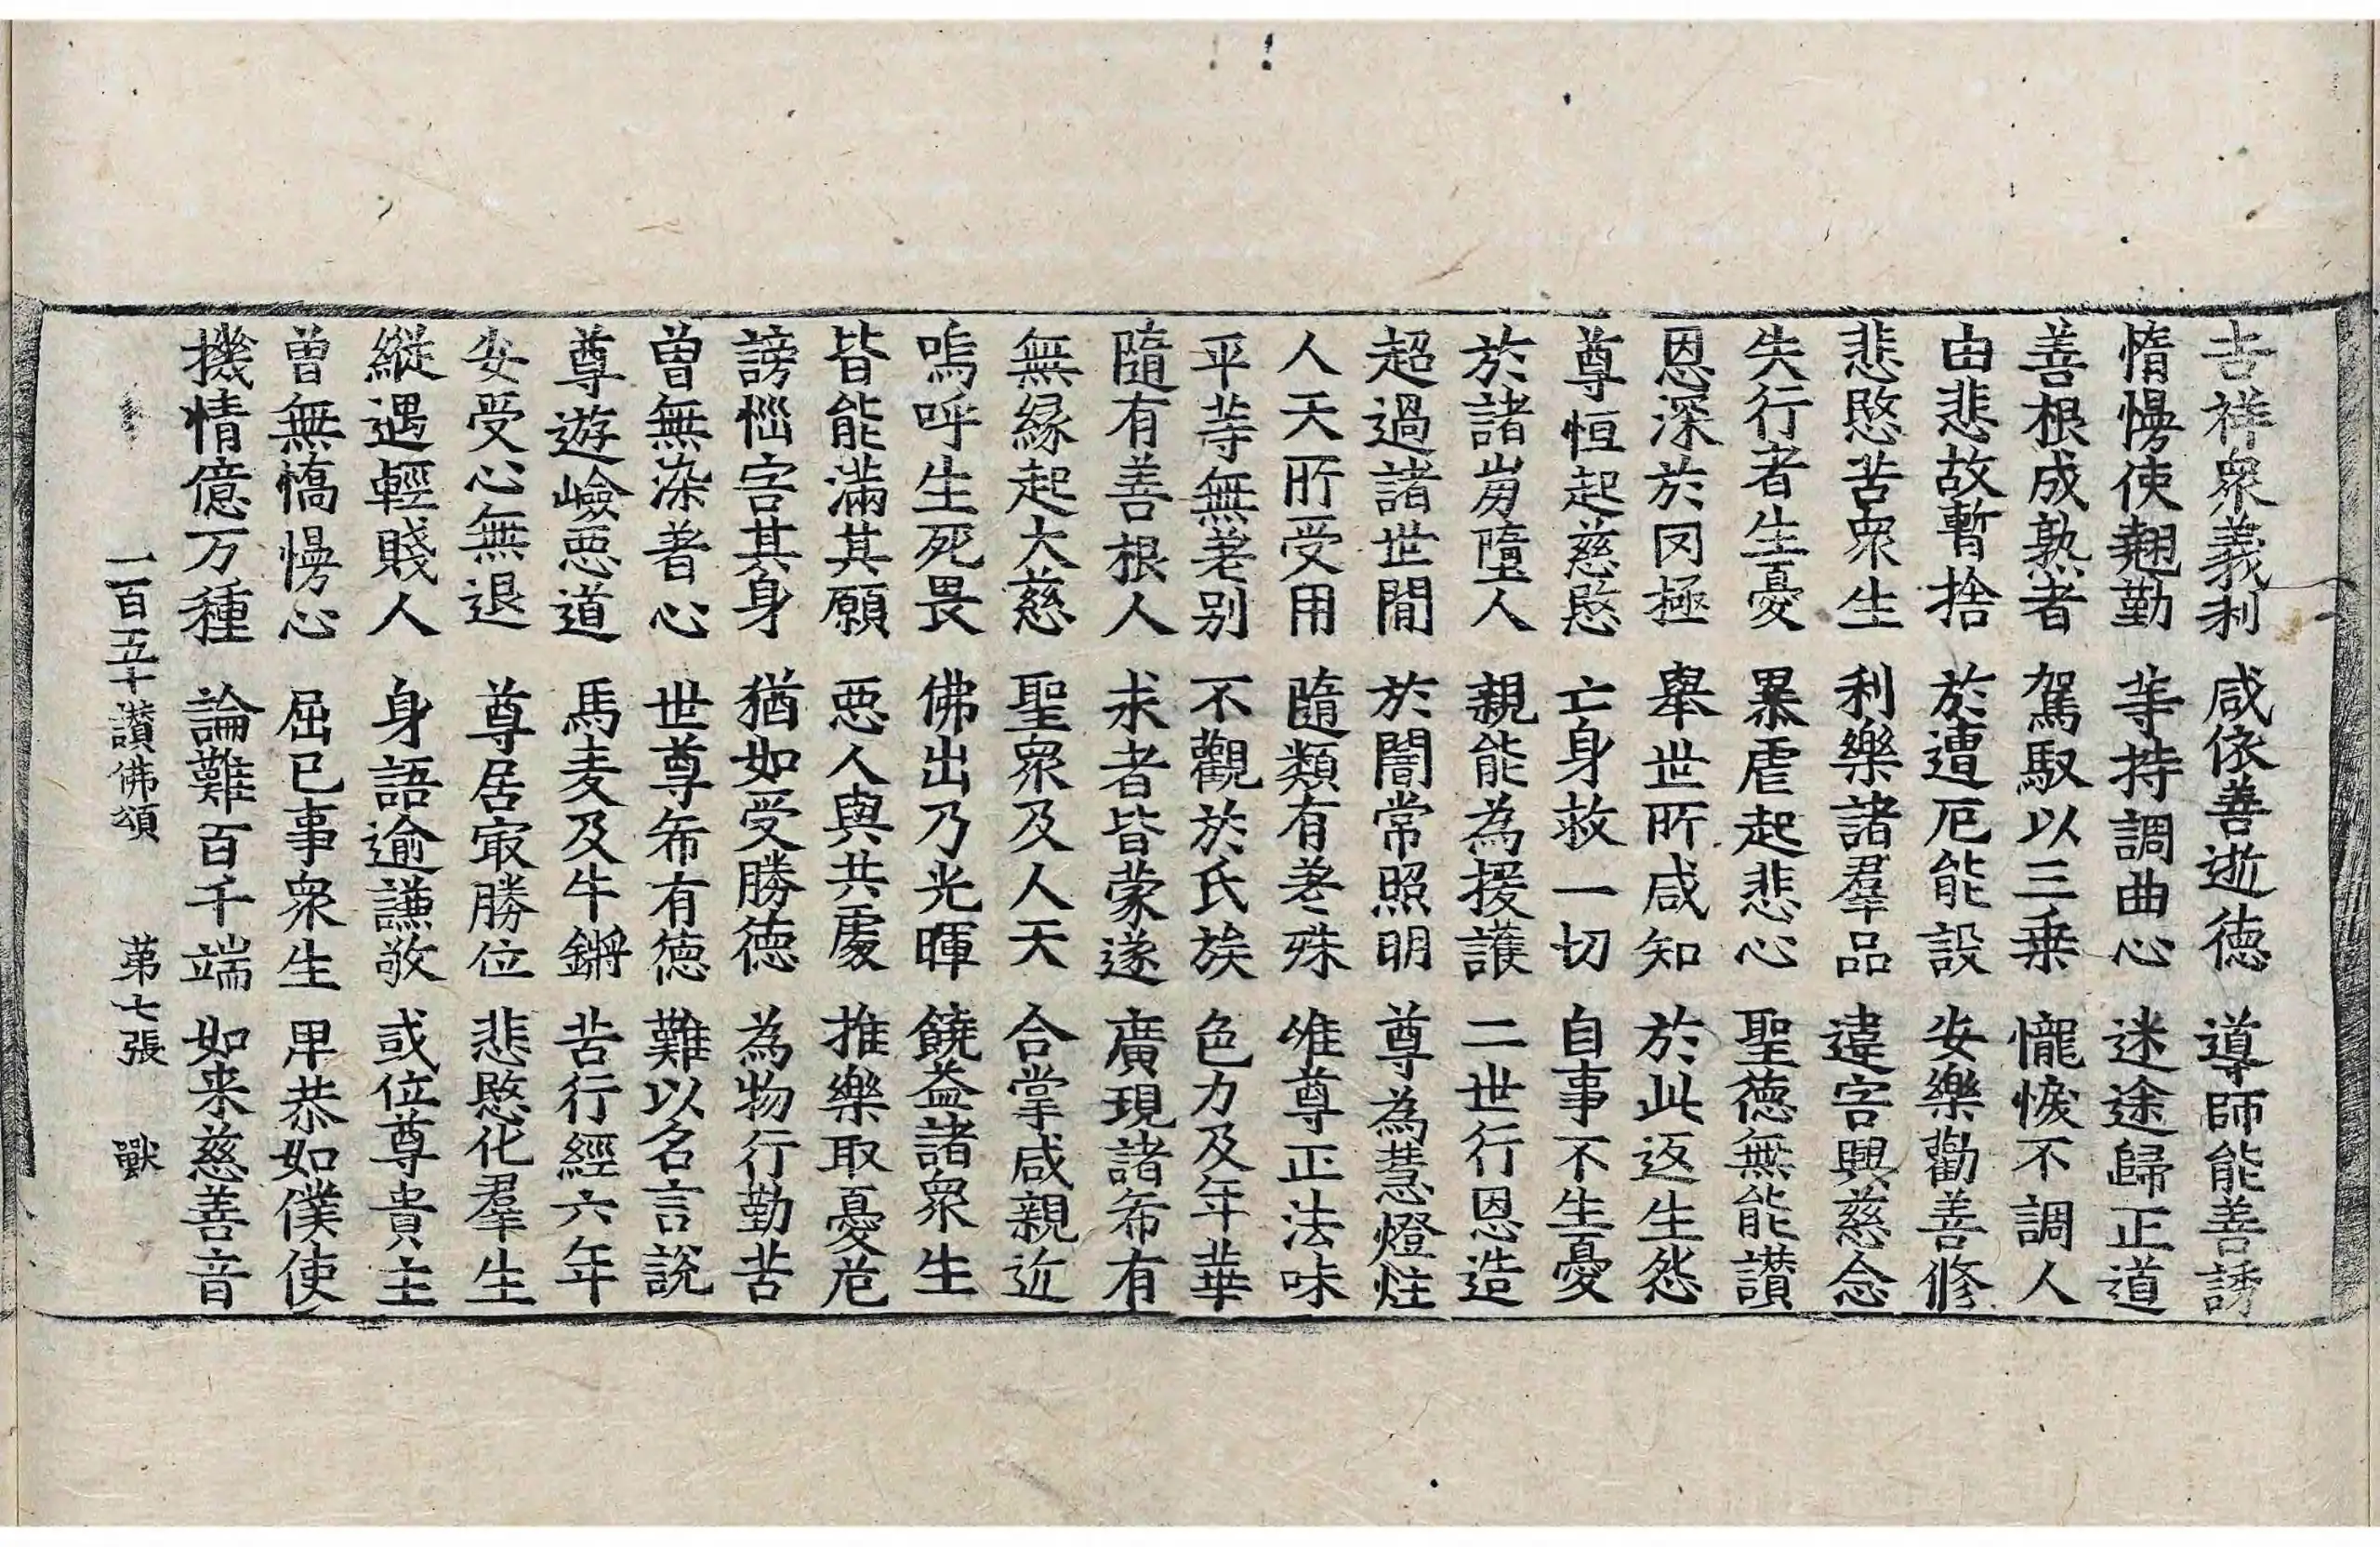 吉祥衆義利 咸依善逝德 導師能善誘
惰慢使翹勤 等持調曲心 迷途歸正道
善根成熟者 駕馭以三乗 𢤱悷不調人
由悲故暫捨 於遭厄能設 安樂勸善修
悲愍苦衆生 利樂諸羣品 違害興慈念
失行者生憂 暴虐起悲心 聖德無能讃
恩深於罔極 舉世所咸知 於此返生怨
尊恒起慈愍 亡身救一切 自事不生憂
於諸崩墮人 親能為援護 二世行恩造
超過諸世間 於闇常照明 尊為慧燈炷
人天所受用 隨類有差殊 唯尊正法味
平等無差別 不觀於氏族 色力及年華
隨有善根人 求者皆蒙遂 廣現諸希有
無緣起大慈 聖衆及人天 合掌咸親近
嗚呼生死畏 佛出乃光暉 饒益諸衆生
皆能滿其願 惡人與共處 推樂取憂危
謗惱害其身 猶如受勝德 為物行勤苦
曾無染著心 世尊希有德 難以名言說
尊遊嶮惡道 馬麦及牛鏘 苦行經六年
安受心無退 尊居㝡勝位 悲愍化羣生
縱遇輕賤人 身語逾謙敬 或位尊貴主
曾無憍慢心 屈己事衆生 卑恭如僕使
機情億万種 論難百千端 如来慈善音
一百五十讃佛頌 第七張